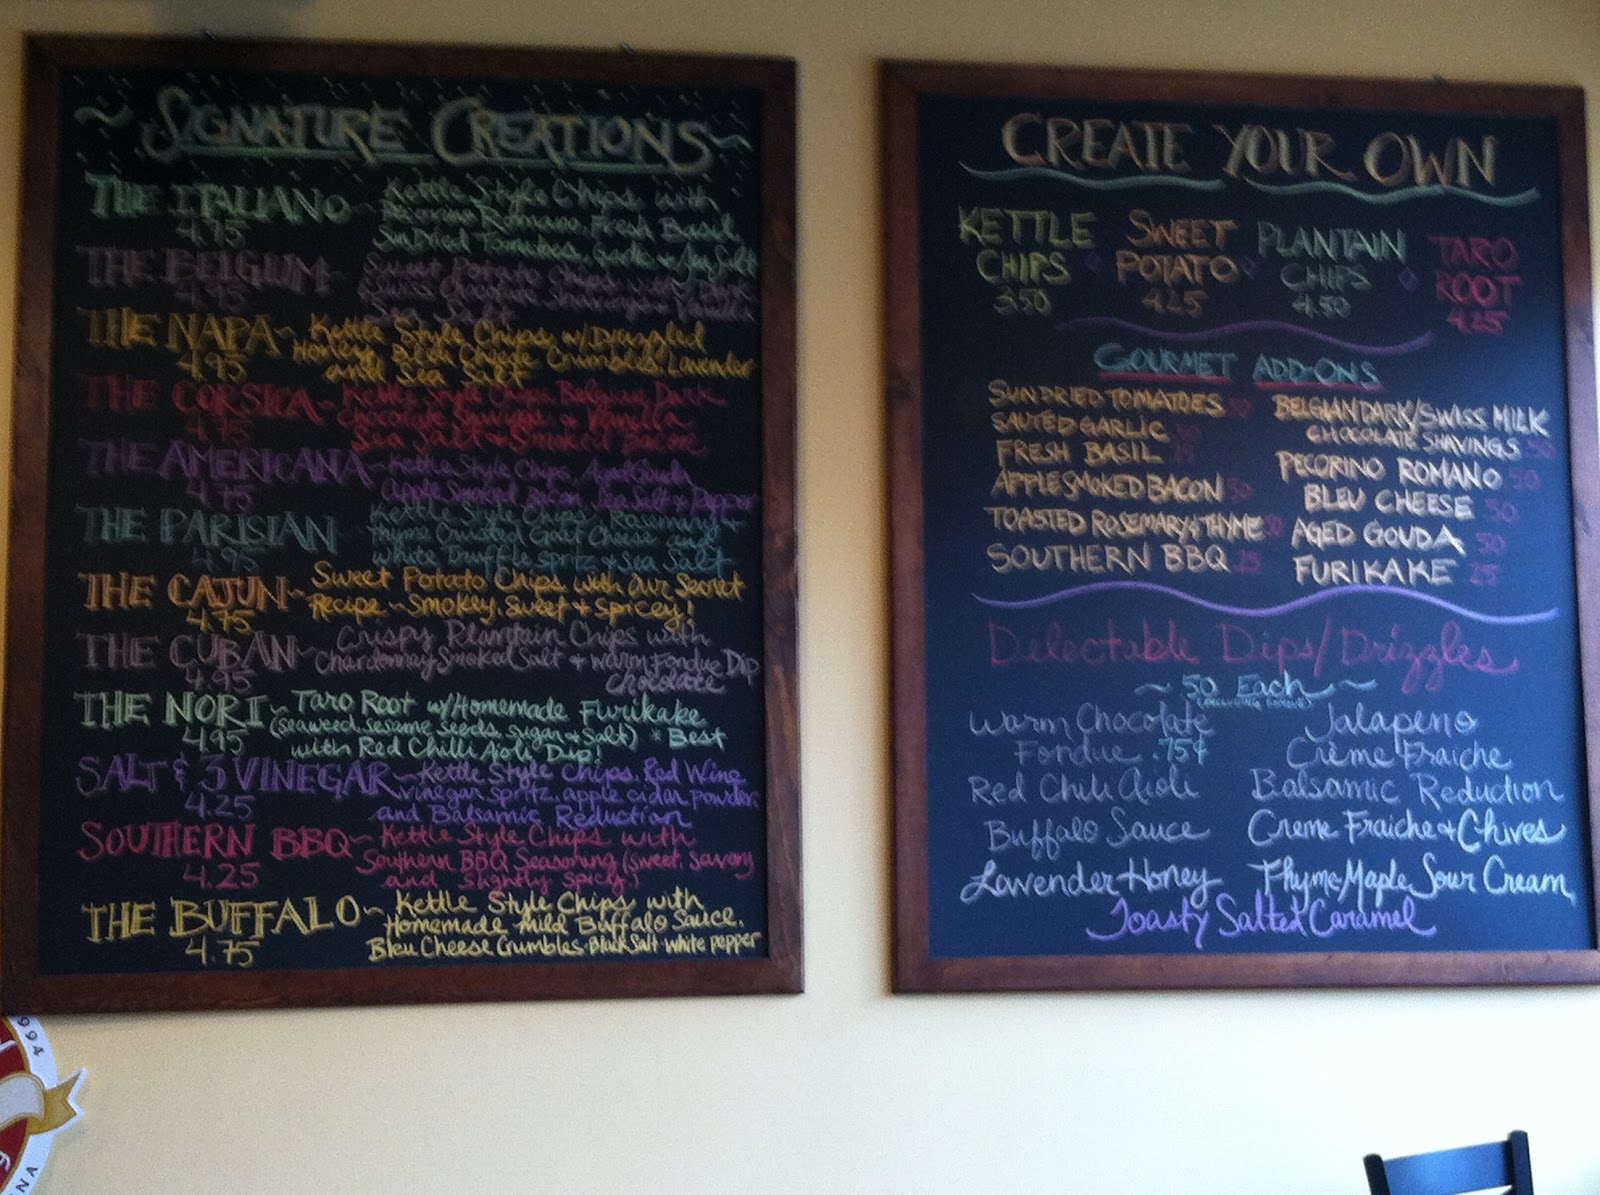 SIGNATURE CREATIONS
THE ITALIANO ~ Kettle Style Chips with
4.95 Pecorino Romano, Fresh Basil,
Sun Dried Tomatoes, Garlic + Sea Salt
THE BELGIUM ~ Sweet Potato Chips with Dark
4.95 Swiss Chocolate Shavings + Vanilla
Sea Salt
THE NAPA ~ Kettle Style Chips w/Drizzled
4.95 Honey, Bleu Cheese Crumbles, Lavender
and Sea Salt
THE CORSICA ~ Kettle Style Chips Belgian Dark
4.95 Chocolate Shavings + Vanilla
Sea Salt + Smoked Bacon
THE AMERICANA ~ Kettle Style Chips, Aged Gouda,
4.75 Apple Smoked Bacon, Sea Salt + Pepper
THE PARISIAN Kettle Style Chips, Rosemary +
4.95 Thyme Crusted Goat Cheese and
White Truffle Spritz + Sea Salt
THE CAJUN ~ Sweet Potato Chips with Our Secret
4.75 Recipe ~ Smokey, Sweet + Spicey!
THE CUBAN ~ Crispy Plantain Chips with
4.95 Chardonnay Smoked Salt + Warm Fondue Dip
Chocolate
THE NORI ~ Taro Root w/Homemade Furikake
4.95 (seaweed, sesame seeds, sugar + Salt) * Best
with Red Chilli Aioli Dip!
SALT & 3 VINEGAR ~ Kettle Style Chips, Red Wine
4.25 vinegar spritz, apple cidar powder,
and Balsamic Reduction
SOUTHERN BBQ ~ Kettle Style Chips with
4.25 Southern BBQ Seasoning (sweet, savory
and slightly spicy!)
THE BUFFALO ~ Kettle Style Chips with
4.75 Homemade Mild Buffalo Sauce,
Bleu Cheese Crumbles, Black Salt White pepper
CREATE YOUR OWN
KETTLE CHIPS 3.50
SWEET POTATO 4.25
PLANTAIN CHIPS 4.50
TARO ROOT 4.25
GOURMET ADD-ONS
SUN DRIED TOMATOES 50
SAUTÉD GARLIC 50
FRESH BASIL
APPLE SMOKED BACON 50
TOASTED ROSEMARY & THYME 50
SOUTHERN BBQ 25
BELGIAN DARK/SWISS MILK
CHOCOLATE SHAVINGS 50
PECORINO ROMANO 50
BLEU CHEESE 50
AGED GOUDA 50
FURIKAKE 25
Delectable Dips/Drizzles
~ 50 Each ~
Warm Chocolate
Fondue .75¢
Red Chili Aioli
Buffalo Sauce
Lavender Honey
Jalapeno
Crème Fraiche
Balsamic Reduction
Creme Fraiche + Chives
Thyme Maple Sour Cream
Toasty Salted Caramel
1994